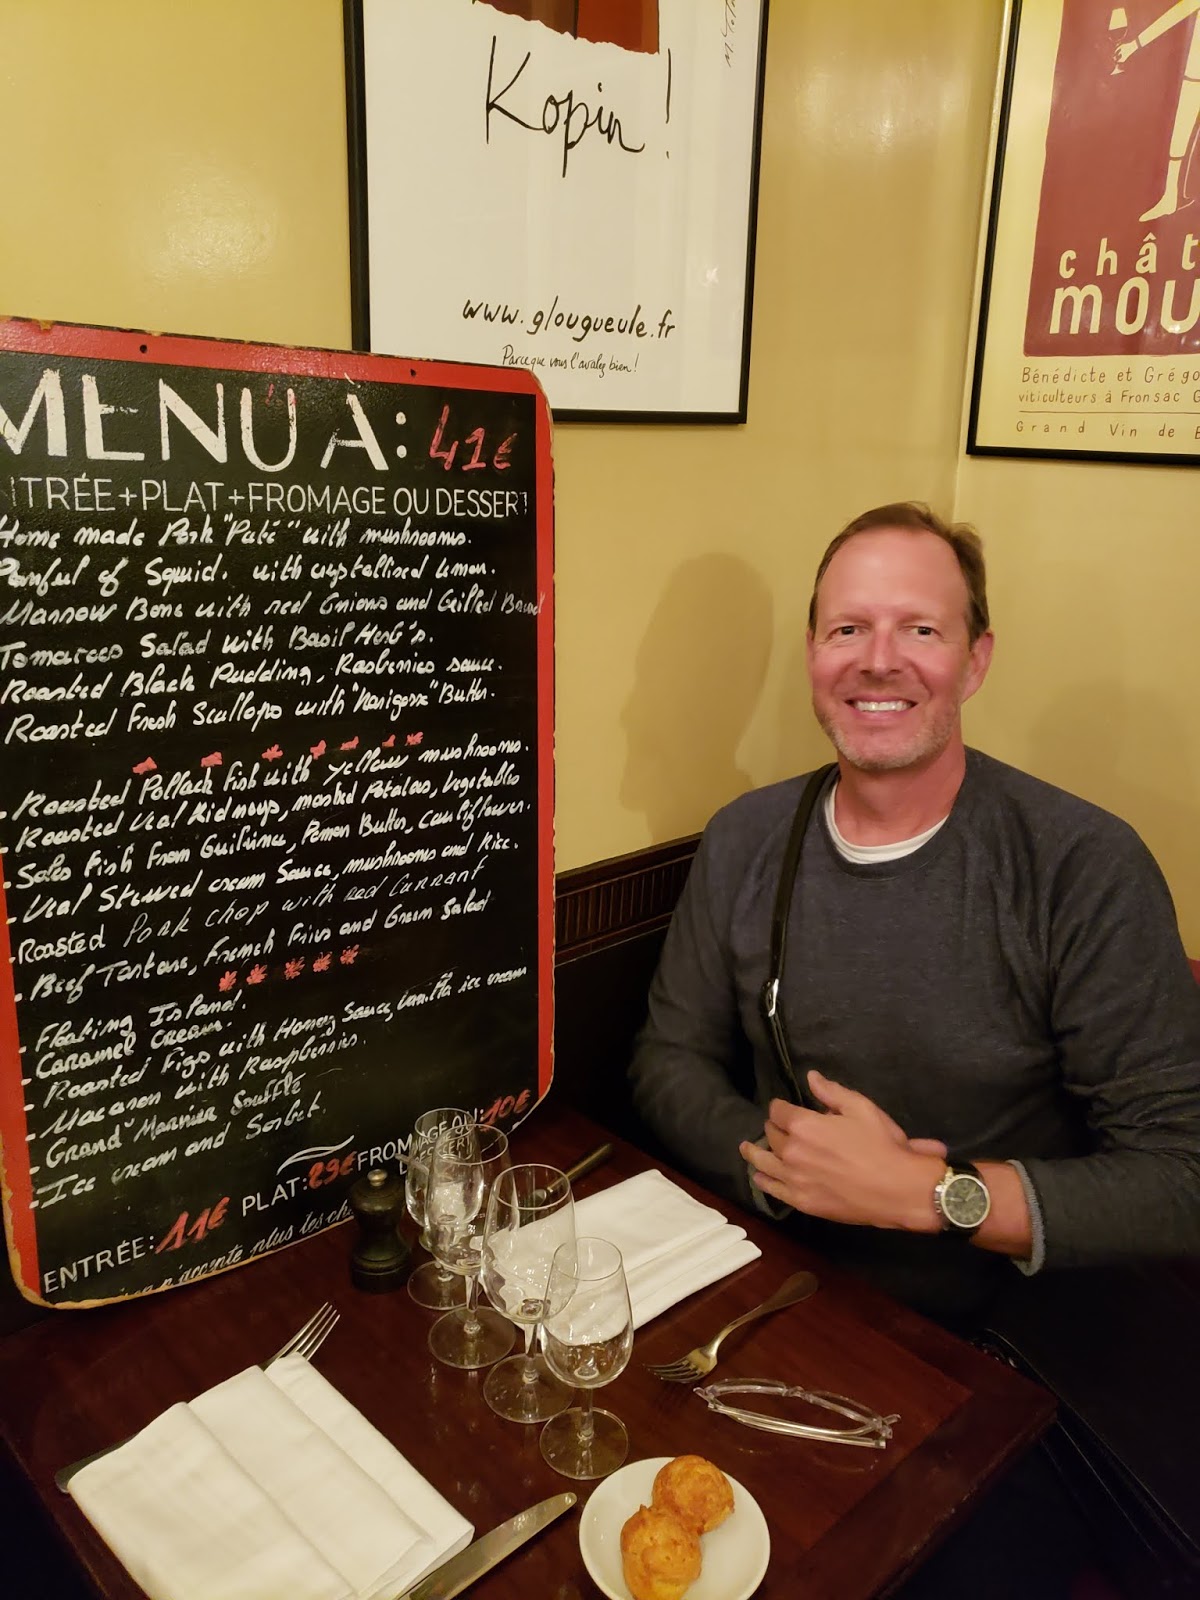 Kopin !
www.glougueule.fr
Parceque vous l'avalez bien !
chât
mou
Bénédicte et Grégo
viticulteurs à Fronsac G
Grand Vin de B
MENU À: 41€
NTRÉE+PLAT+FROMAGE OU DESSERT
Home made Pork "Paté" with mushrooms.
Panful of Squid. with crystallised lemon.
Marrow Bone with red Onions and Grilled Bread
Tomatoes Salad with Basil Herb's.
Roasted Black Pudding, Rasberries sauce.
Roasted Fresh Scallops with Butter.
- Roasted Pollack Fish with yellow mushrooms.
- Roasted Veal Kidneys, mashed Potatoes, vegetables
- Soles Fish From Butter, cauliflower.
- Veal Stewed cream Sauce, mushrooms and Rice.
- Roasted Pork chop with red Currant
- Beef Tartare, French Fries and Green Salad
- Floating Island.
- Caramel Cream.
- Roasted Figs with Honey Sauce, vanilla ice cream
- Macaron with Raspberries.
- Grand Marnier Soufflé
- Ice cream and Sorbet.
ENTRÉE: 11€ PLAT: 23€ FROMAGE OU: 10€
DESSERT
n'accepte plus les